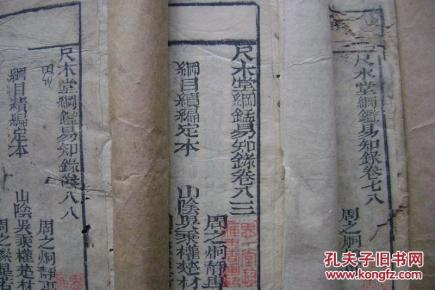 尺木堂綱鑑易知錄卷七八
周之炯
尺木堂綱鑑易知錄卷八三
綱目續編定本
山陰吳乘權楚材
周之炯靜
尺木堂綱鑑易知錄卷八八
綱目續編定本
山陰吳乘權楚材
周之炯靜
周之燦
孔夫子旧书网
www.kongfz.com